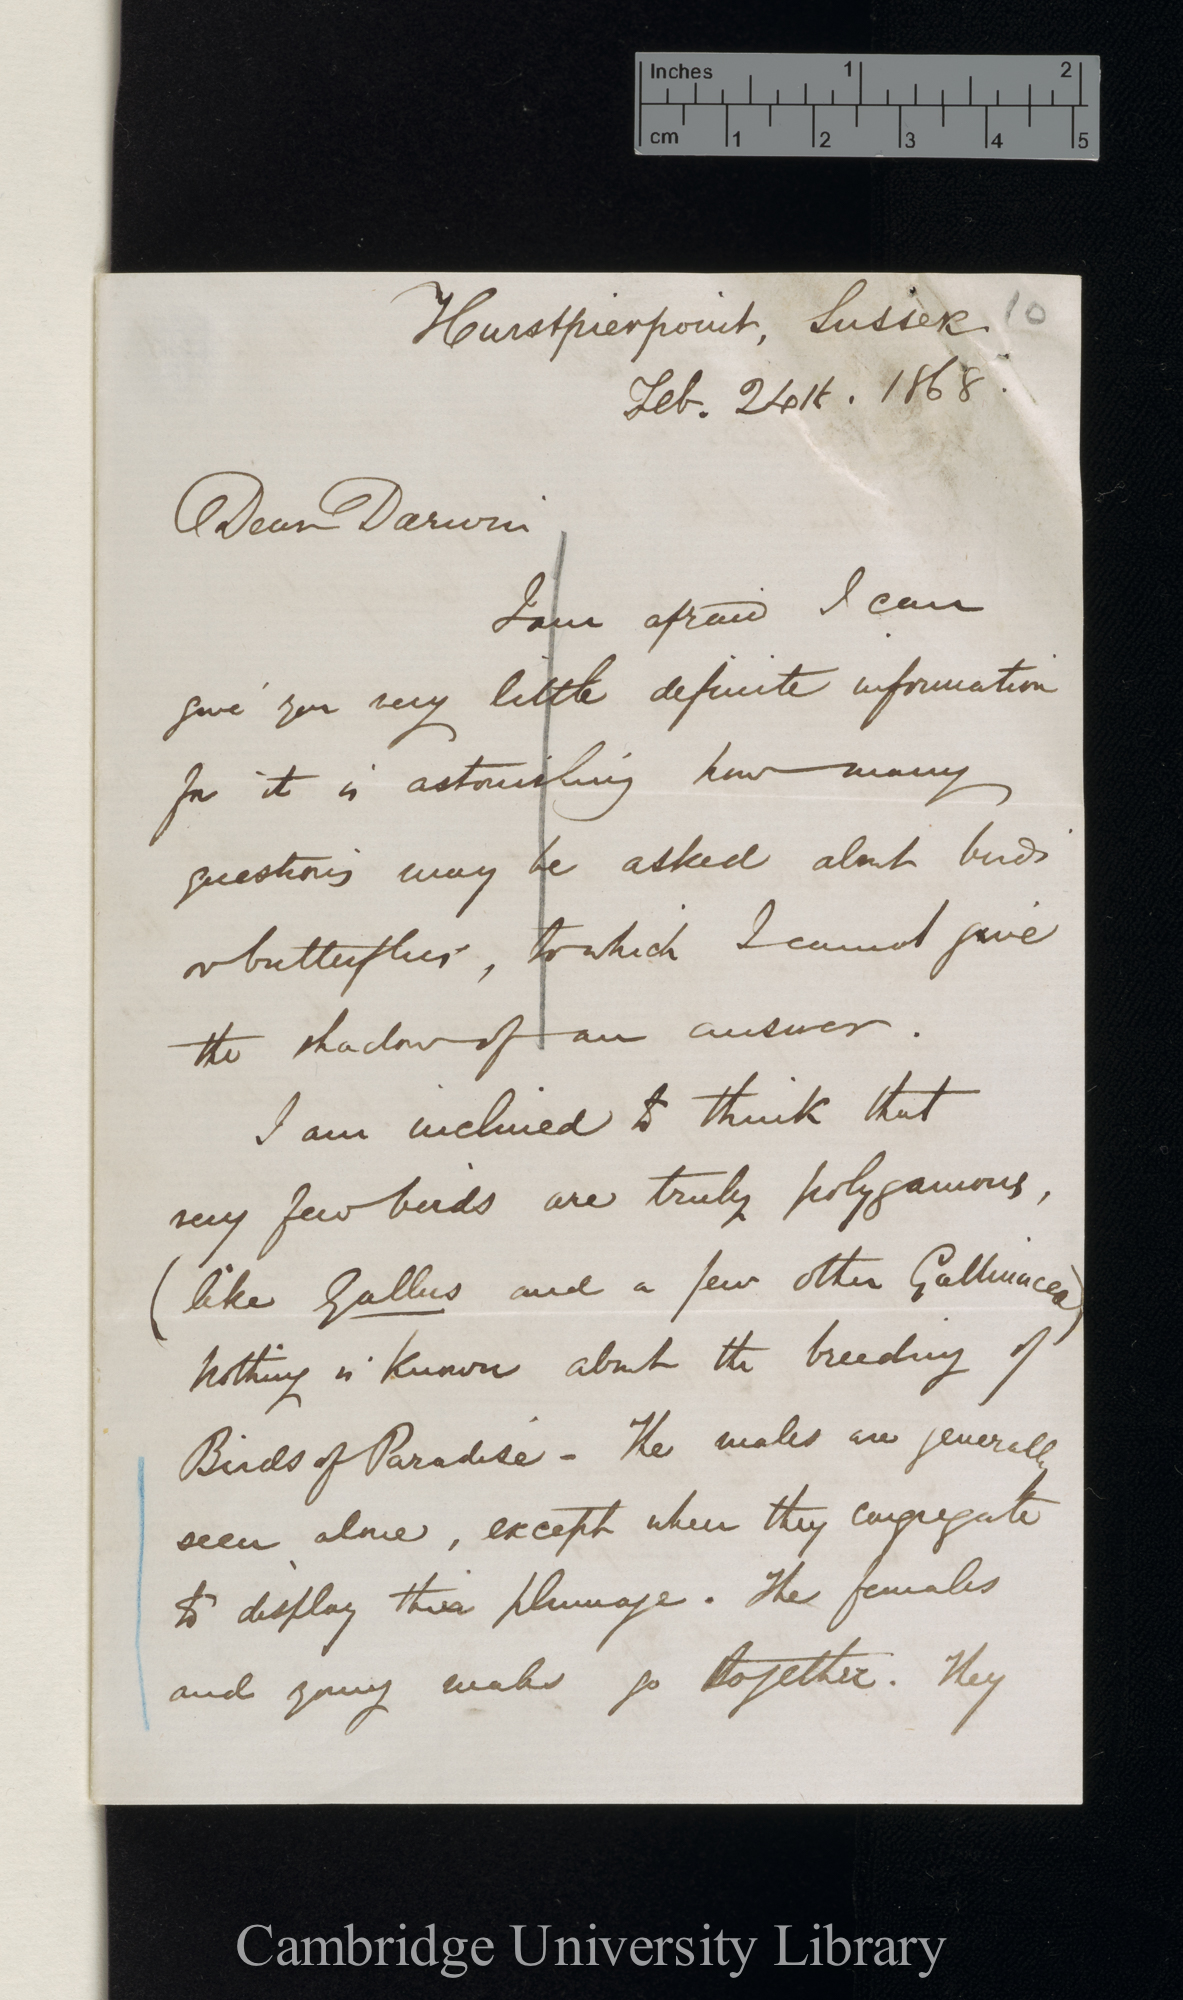 Inches 1 2
cm 1 2 3 4 5
Hurstpierpoint, Sussex 10
Feb. 24th. 1868.
Dear Darwin
I am afraid I can
give you very little definite information
for it is astonishing how many
questions may be asked about birds
or butterflies, to which I cannot give
the shadow of an answer.
I am inclined to think that
very few birds are truly polygamous,
(like Gallus and a few other Gallinacea)
Nothing is known about the breeding of
Birds of Paradise - The males are generally
seen alone, except when they congregate
to display their plumage. The females
and young males go together. They
Cambridge University Library